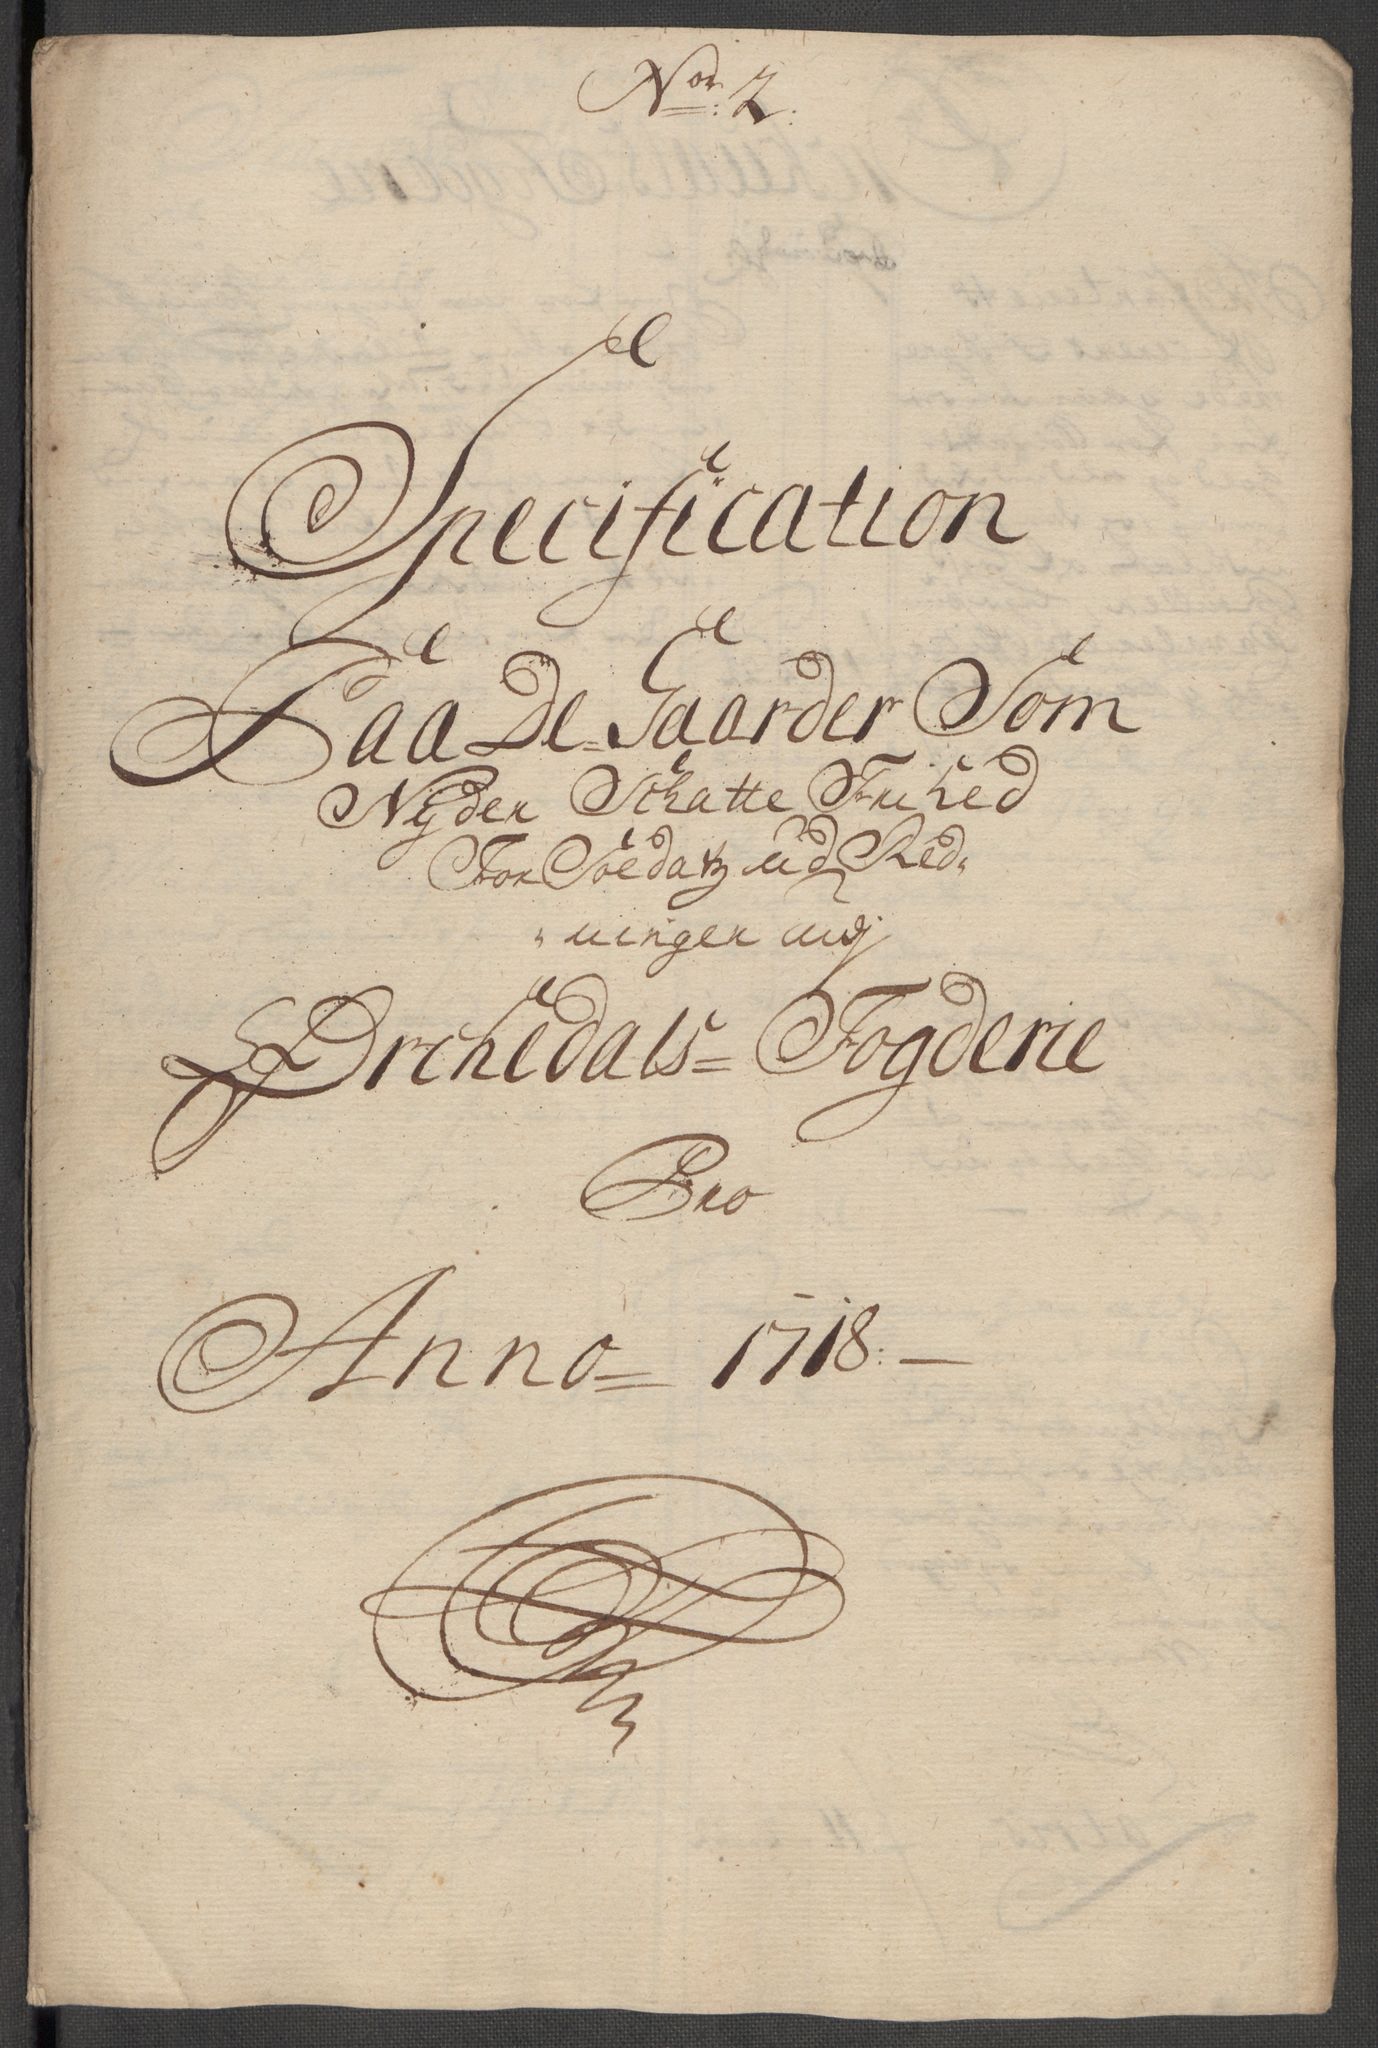 No: 2.
Specification
Paa De=Gaarder Som
Nÿder Schatte Frihed
For Soldatz ud Red,
,ningen udj
Orchedals= Fogderie
Pro
Anno= 1718:—